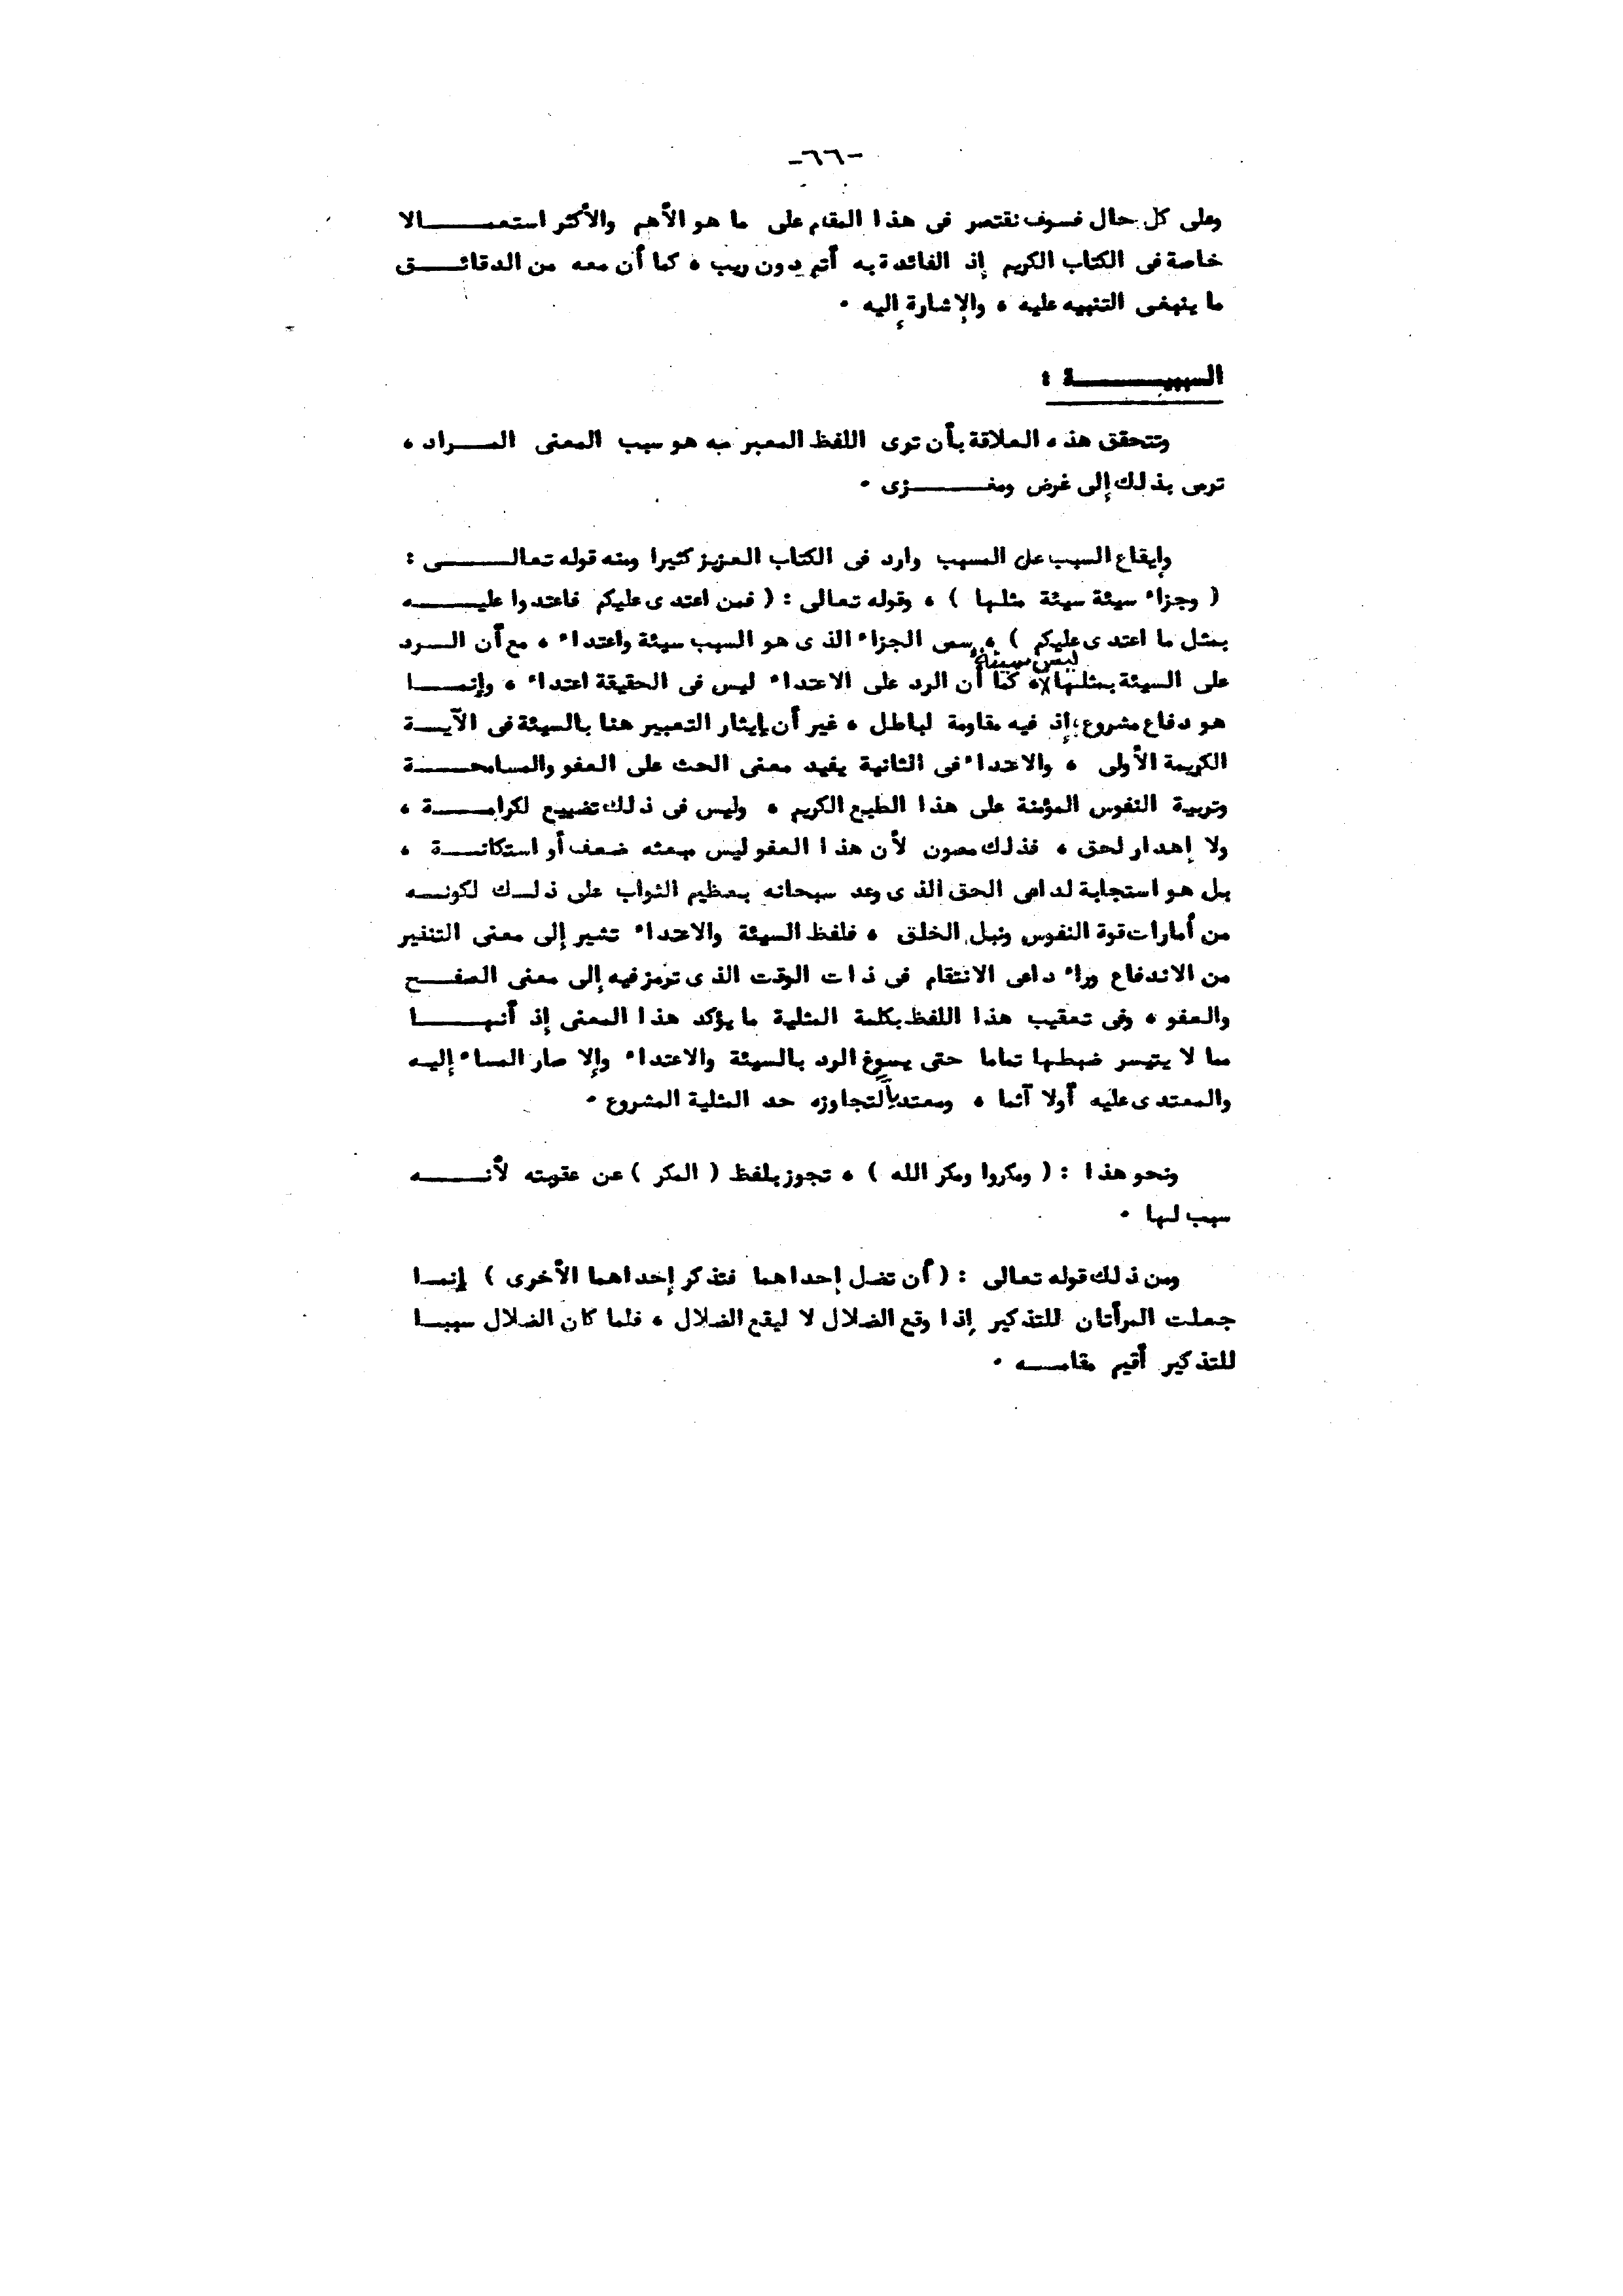 -٦٦-
وعلى كل حال فسوف نقتصر فى هذا المقام على ما هو الأهم والأكثر استعمالا
خاصة فى الكتاب الكريم إذ الفائدة به أتم بدون ريب ، كما أن معه من الدقائق
ما ينبغى التنبيه عليه ، والإشارة إليه .
السببية :
وتتحقق هذه العلاقة بأن ترى اللفظ المعبر به هو سبب المعنى المراد ،
ترمى بذلك إلى غرض ومغزى .
وإيقاع السبب على المسبب وارد فى الكتاب العزيز كثيرا ومنه قوله تعالى :
( وجزاء سيئة سيئة مثلها ) ، وقوله تعالى : ( فمن اعتدى عليكم فاعتدوا عليه
بمثل ما اعتدى عليكم ) ، سمى الجزاء الذى هو السبب سيئة واعتداء ، مع أن الرد
على السيئة بمثلها ليس سيئة ، كما أن الرد على الاعتداء ليس فى الحقيقة اعتداء ، وإنما
هو دفاع مشروع ؛ إذ فيه مقاومة لباطل ، غير أن إيثار التعبير هنا بالسيئة فى الآية
الكريمة الأولى ، والاعتداء فى الثانية يفيد معنى الحث على العفو والمسامحة
وتربية النفوس المؤمنة على هذا الطبع الكريم ، وليس فى ذلك تضييع لكرامة ،
ولا إهدار لحق ، فذلك مصون لأن هذا العفو ليس مبعثه ضعف أو استكانة ،
بل هو استجابة لداعى الحق الذى وعد سبحانه بعظيم الثواب على ذلك لكونه
من أمارات قوة النفوس ونبل الخلق ، فلفظ السيئة والاعتداء تشير إلى معنى التنفير
من الاندفاع وراء داعى الانتقام فى ذات الوقت الذى ترمز فيه إلى معنى الصفح
والعفو ، وفى تعقيب هذا اللفظ بكلمة المثلية ما يؤكد هذا المعنى إذ أنها
مما لا يتيسر ضبطها تماما حتى يسوغ الرد بالسيئة والاعتداء وإلا صار المساء إليه
والمعتدى عليه أولا آثما ، ومعتديا لتجاوزه حد المثلية المشروع .
ونحو هذا : ( ومكروا ومكر الله ) ، تجوز بلفظ ( المكر ) عن عقوبته لأنه
سبب لها .
ومن ذلك قوله تعالى : ( أن تضل إحداهما فتذكر إحداهما الأخرى ) إنما
جعلت المرأتان للتذكير إذا وقع الضلال لا ليقع الضلال ، فلما كان الضلال سببا
للتذكير أقيم مقامه .